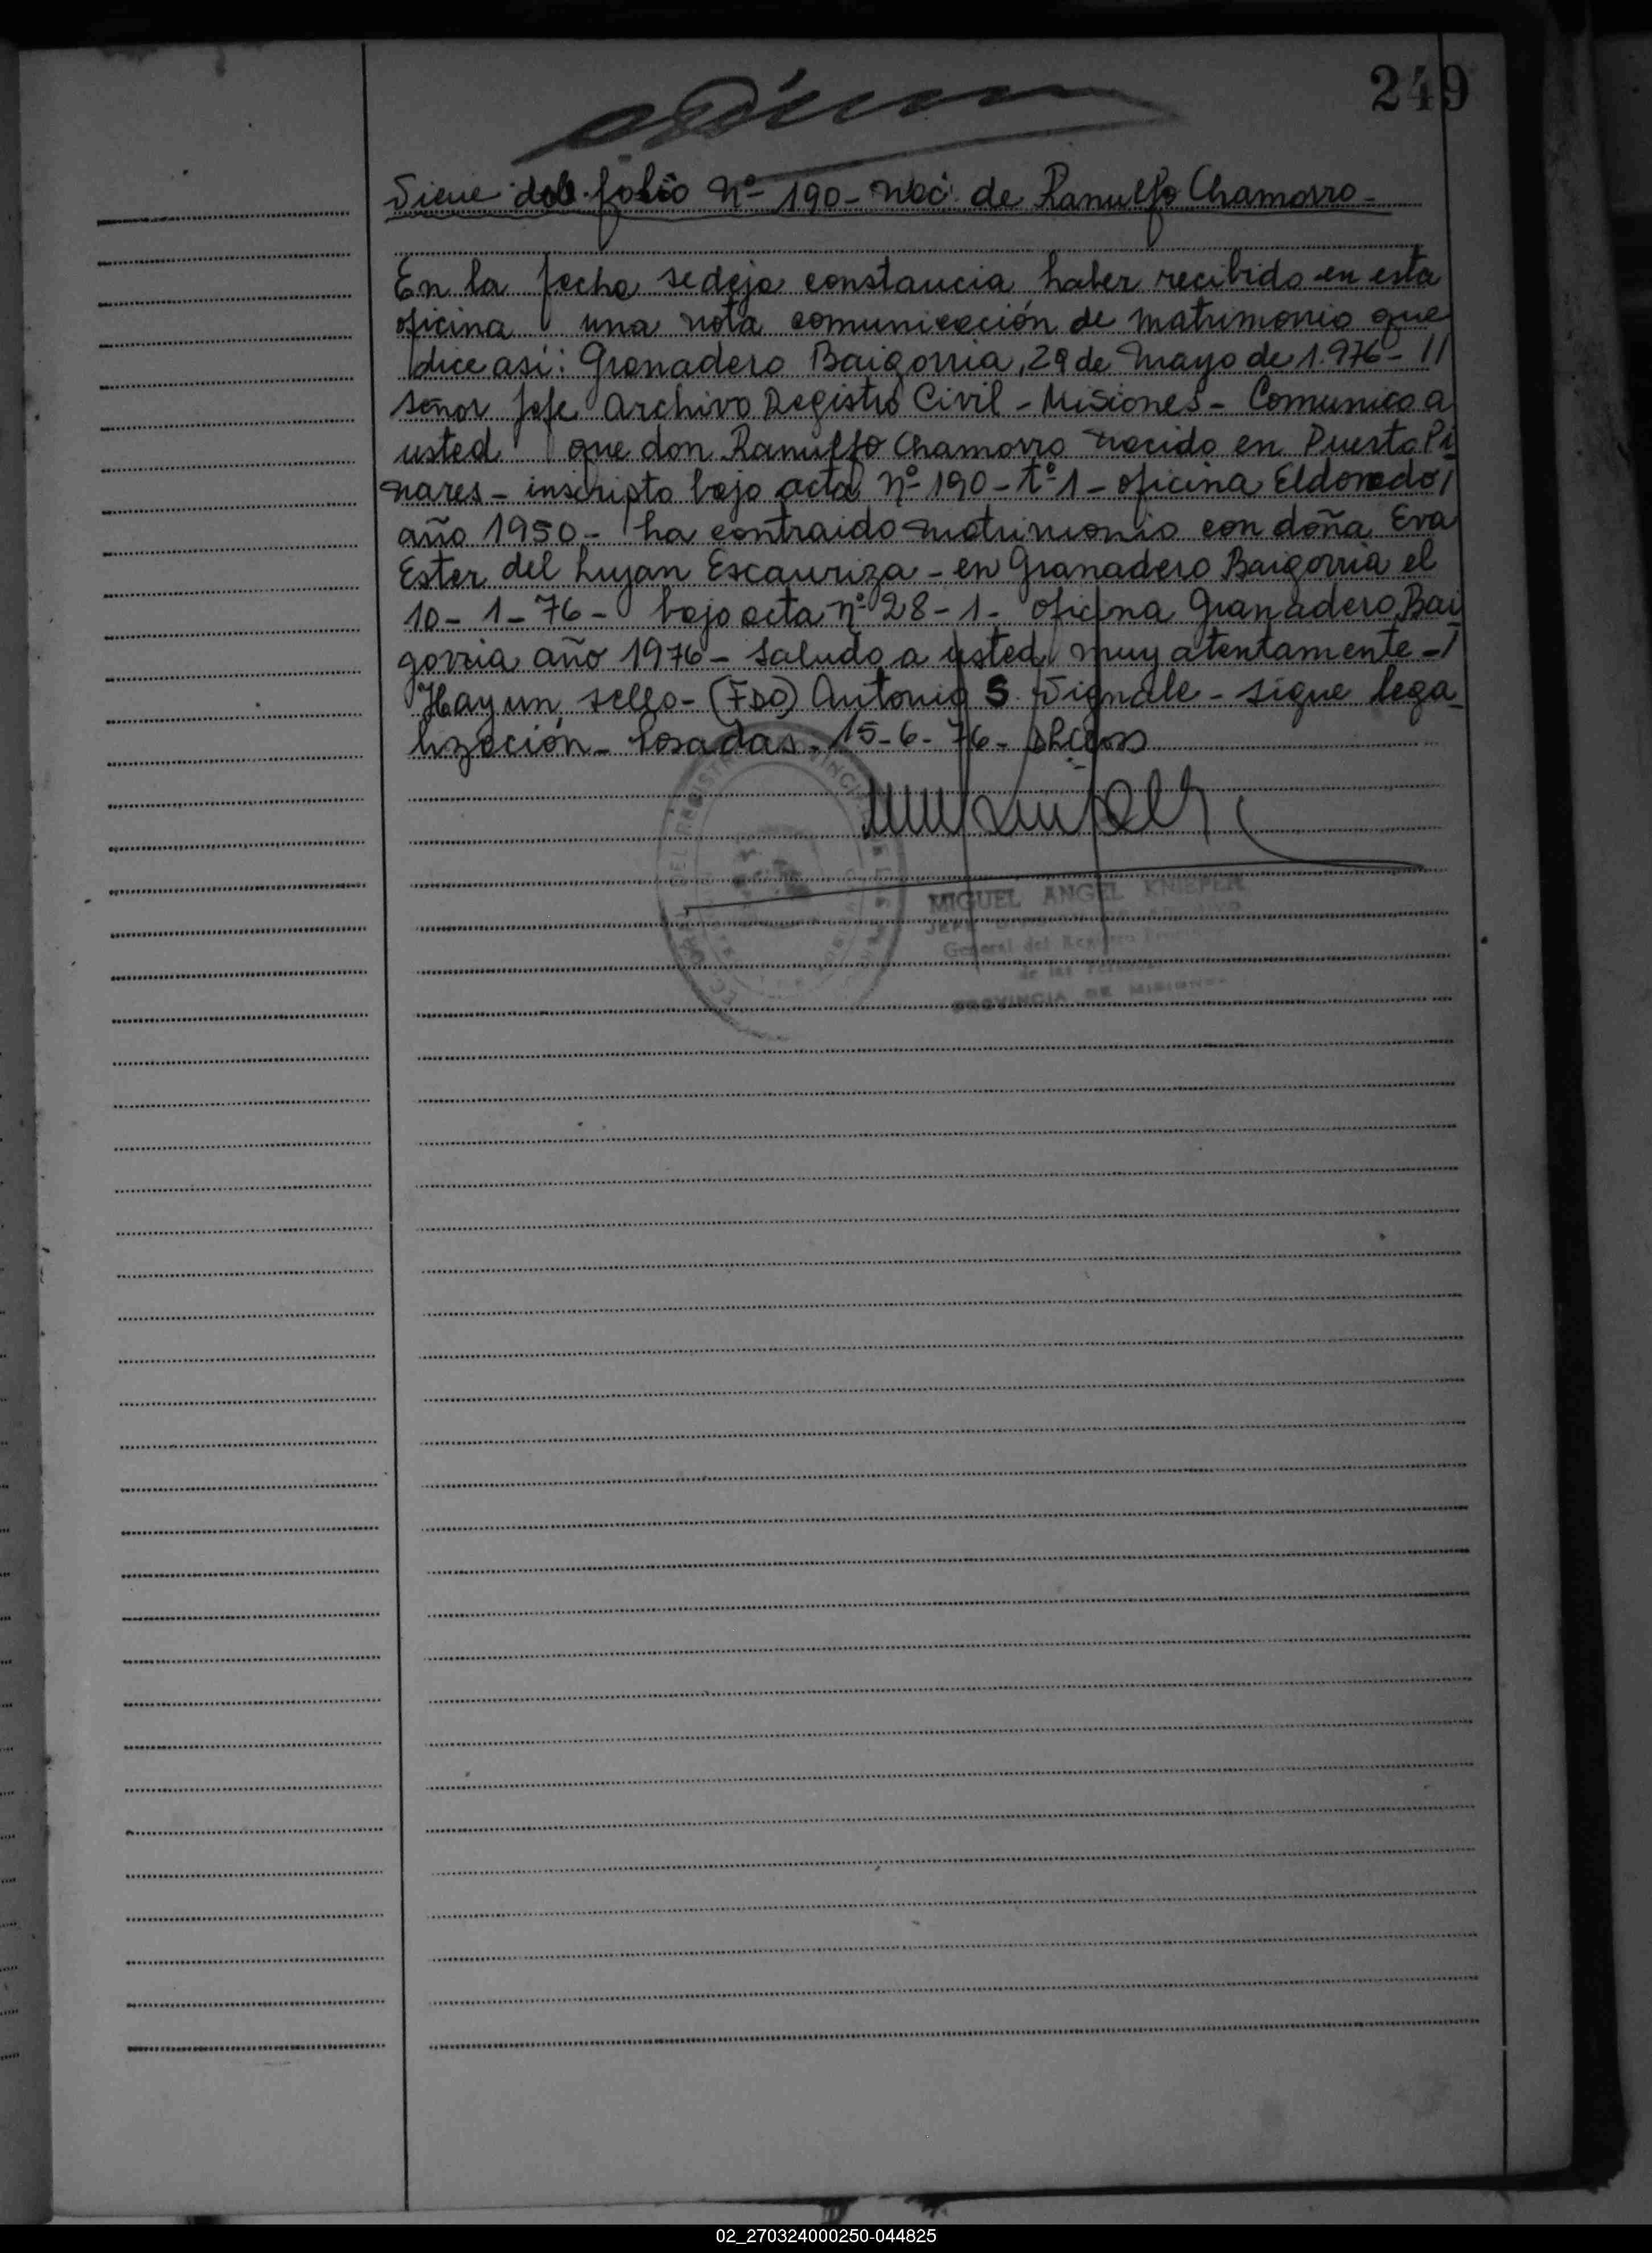 249
Viene del folio Nº 190 - Nac. de Ranulfo Chamorro -
En la fecha se deja constancia haber recibido en esta
oficina una nota comunicación de matrimonio que
dice asi: Granadero Baigorria, 29 de Mayo de 1.976 - //
Señor Jefe Archivo Registro Civil - Misiones - Comunico a
usted que don Ranulfo Chamorro nacido en Puerto Pi
nares - inscripto bajo acta nº 190 - tº 1 - oficina Eldorado /
año 1950 - ha contraido matrimonio con doña Eva
Ester del Lujan Escauriza - en Granadero Baigorria el
10 - 1 - 76 - bajo acta nº 28 - 1 - oficina Granadero Bai
gorria año 1976 - Saludo a usted muy atentamente - /
Hay un sello - (FDO) Antonio S. Vignale - sigue lega_
lización - Posadas - 15 - 6 - 76 -
MIGUEL ANGEL KNIEPER
JEFE
General del Registro
de las Personas
PROVINCIA DE MISIONES
02_270324000250-044825